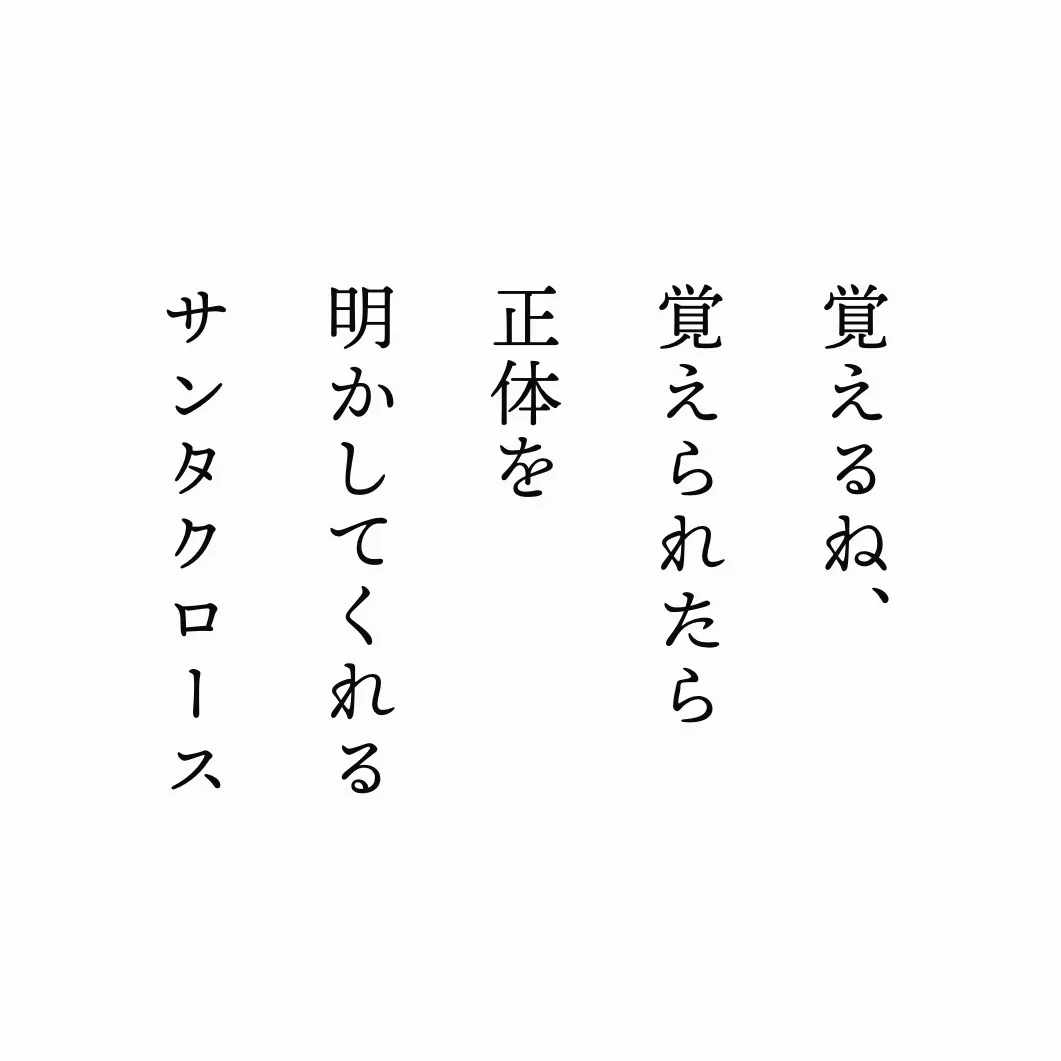 覚えるね、
覚えられたら
正体を
明かしてくれる
サンタクロース